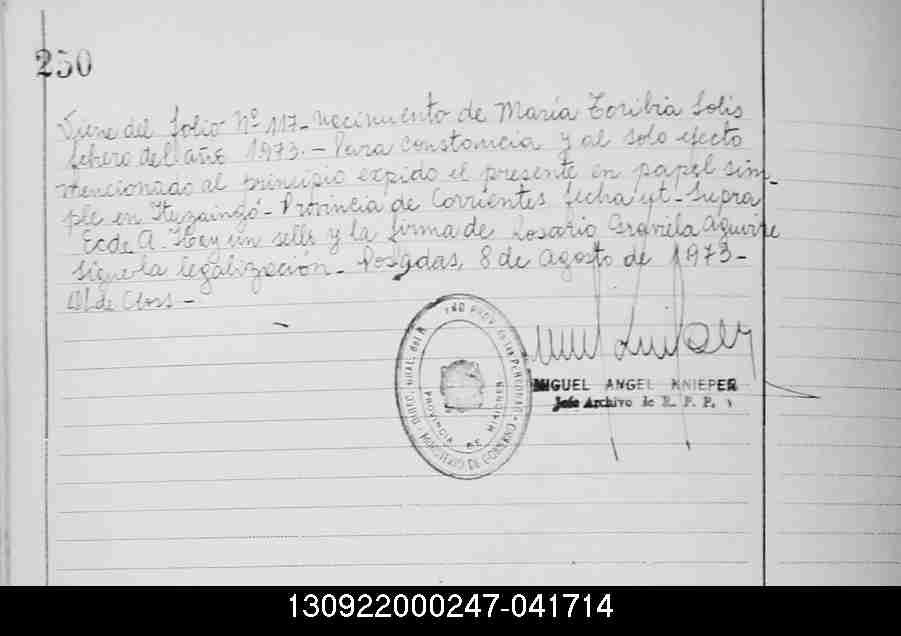 250
Viene del folio Nº 117 - Nacimiento de María Toribia Solis
febrero del año 1973. - Para constancia y al solo efecto
mencionado al principio expido el presente en papel sim-
ple en Ituzaingó - Provincia de Corrientes fecha ut - Supra
Hay un sello y la firma de Rosario Graciela Aguirre
Sigue la legalización - Posadas, 8 de Agosto de 1973 -
MIGUEL ANGEL KNIEPER
Jefe Archivo de R. P. P.
PROVINCIA DE MISIONES
MINISTERIO DE GOBIERNO
130922000247-041714